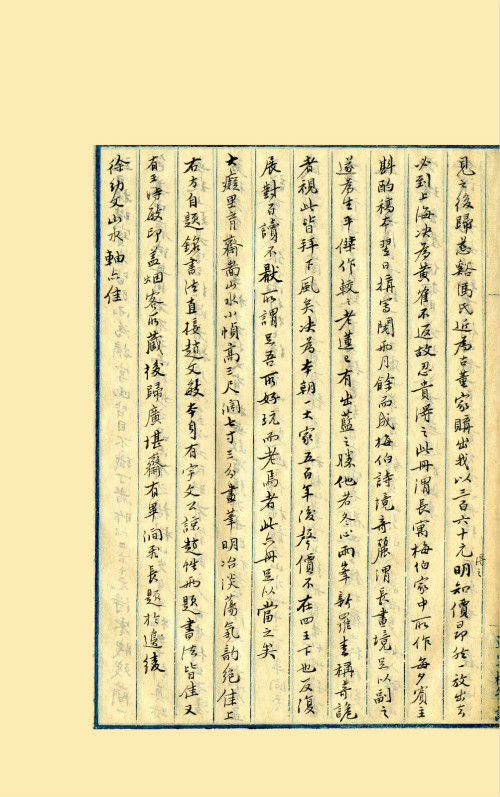 見之後歸慈谿馮氏近為古董家購出我以三百六十元得之明知價昂然一放出去
必到上海決為黃雀不返故忍貴得之此冊渭長寓梅伯家中所作每夕賓主
斟酌稿本翌日構寫閱兩月餘而成梅伯詩境奇麗渭長畫境足以副之
遂為生平傑作較之老蓮已有出藍之勝他若冬心兩峯新羅素稱奇詭
者視此皆拜下風矣決為本朝一大家五百年後聲價不在四王下也反復
展對百讀不厭所謂足吾所好玩而老焉者此六冊足以當之矣
大癡里育齋嵩山水小幀高三尺闊七寸三分畫筆明冶淡蕩氣韻絕佳上
右方自題銘書法直接趙文敏本身有宇文公諒趙性兩題書法皆佳又
有王時敏印蓋烟客所藏後歸廣堪齋有畢澗飛長題於邊綾
徐幼文山水軸亦佳